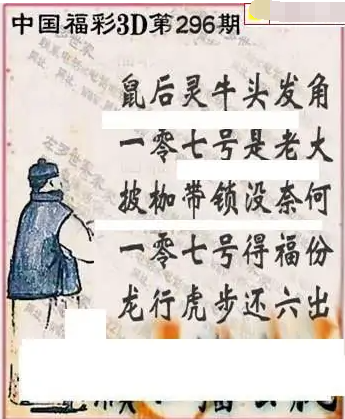 中国福彩3D第296期
鼠后灵牛头发角
一零七号是老大
披枷带锁没奈何
一零七号得福份
龙行虎步还六出